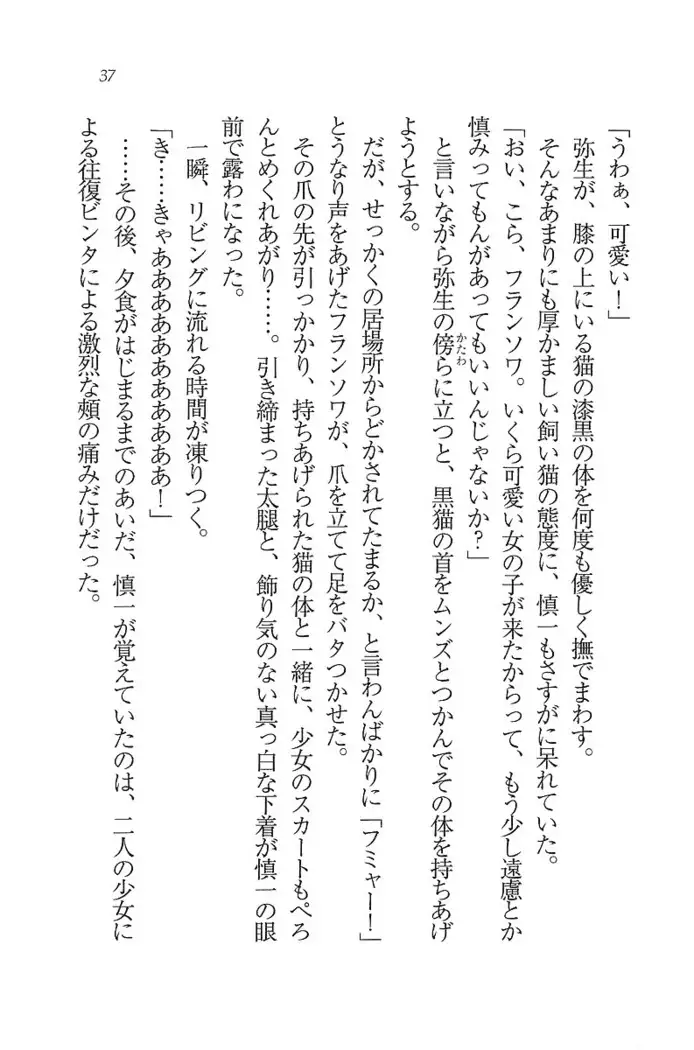 37
「うわぁ、可愛い！」
弥生が、膝の上にいる猫の漆黒の体を何度も優しく撫でまわす。
そんなあまりにも厚かましい飼い猫の態度に、慎一もさすがに呆れていた。
「おい、こら、フランソワ。いくら可愛い女の子が来たからって、もう少し遠慮とか
慎みってもんがあってもいいんじゃないか？」
と言いながら弥生の傍らに立つと、黒猫の首をムンズとつかんでその体を持ちあげ
かたわ
ようとする。
だが、せっかくの居場所からどかされてたまるか、と言わんばかりに「フミャー！」
とうなり声をあげたフランソワが、爪を立てて足をバタつかせた。
その爪の先が引っかかり、持ちあげられた猫の体と一緒に、少女のスカートもぺろ
んとめくれあがり……。引き締まった太腿と、飾り気のない真っ白な下着が慎一の眼
前で露わになった。
一瞬、リビングに流れる時間が凍りつく。
「き……きゃあああああああああ！」
……その後、夕食がはじまるまでのあいだ、慎一が覚えていたのは、二人の少女に
よる往復ビンタによる激烈な頰の痛みだけだった。